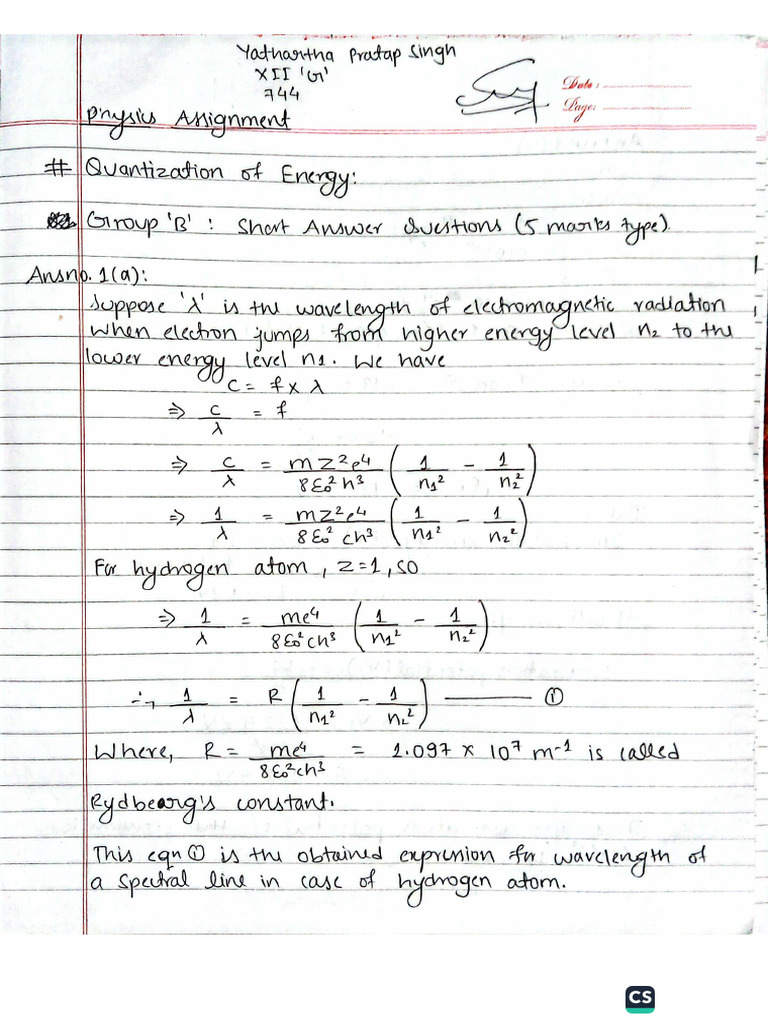 Yathartha Pratap Singh
XII 'G'
744
Date :
Page:
Physics Assignment
# Quantization of Energy:
Group 'B' : Short Answer Questions (5 marks type).
Ansno. 1(a):
Suppose 'λ' is the wavelength of electromagnetic radiation
when electron jumps from higher energy level n₂ to the
lower energy level n1. We have
C = f x λ
⇒ c/λ = f
⇒ c/λ = mZ²e⁴/8ε₀²h³ (1/n₁² - 1/n₂²)
⇒ 1/λ = mZ²e⁴/8ε₀²ch³ (1/n₁² - 1/n₂²)
For hydrogen atom, Z=1, so
⇒ 1/λ = me⁴/8ε₀²ch³ (1/n₁² - 1/n₂²)
∴, 1/λ = R (1/n₁² - 1/n₂²) ——— ①
Where, R = me⁴/8ε₀²ch³ = 1.097 x 10⁷ m⁻¹ is called
Rydbearg's constant.
This eqn ① is the obtained expression for wavelength of
a spectral line in case of hydrogen atom.
CS